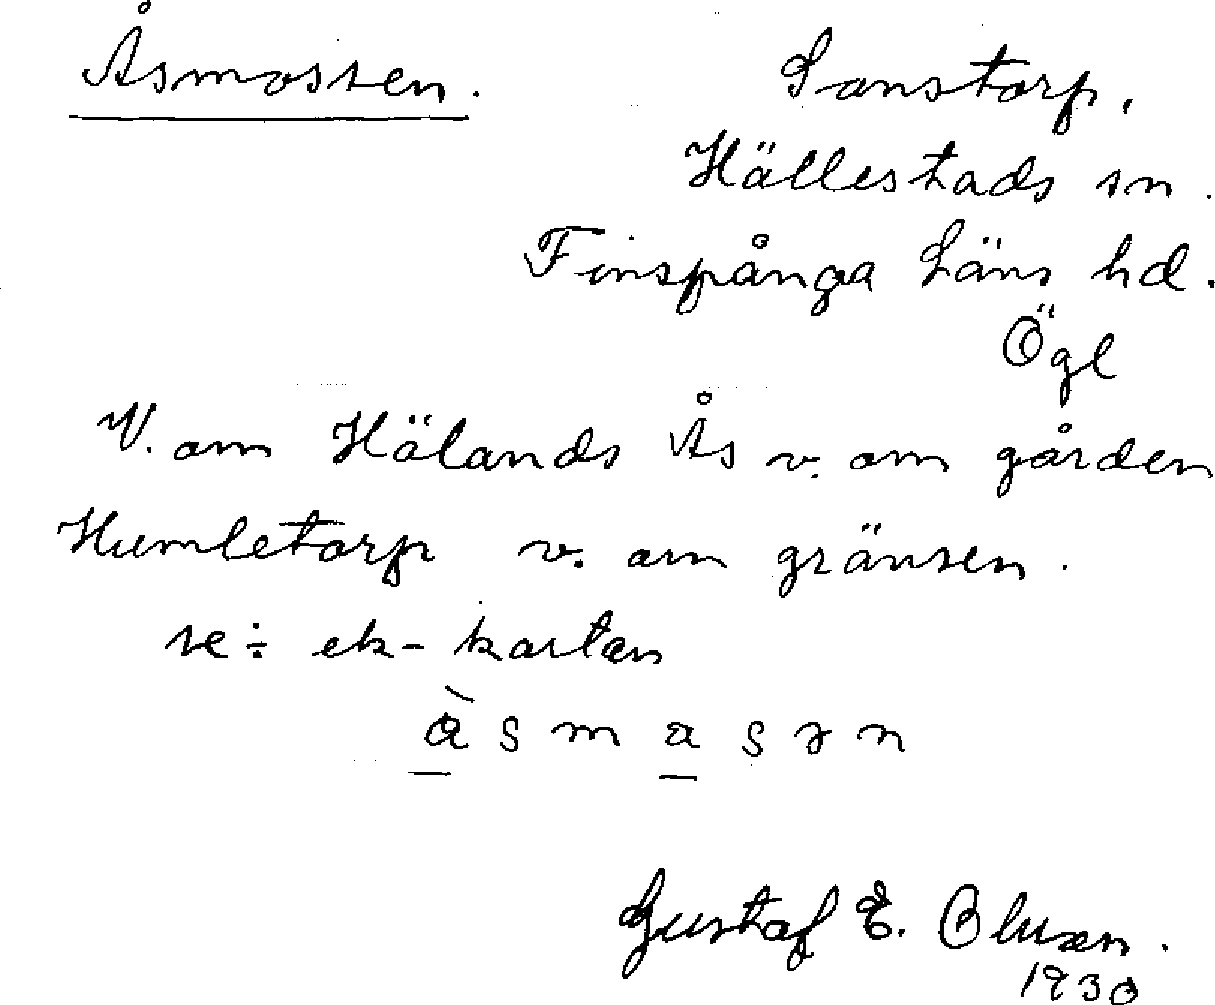 Åsmossen.
Sonstorp,
Hällestads sn.
Finspånga Läns hd.
Ögl
V. om Hälands Ås v. om gården
Humletorp v. om gränsen.
se ÷ ek-kartan
Gustaf E.
1930